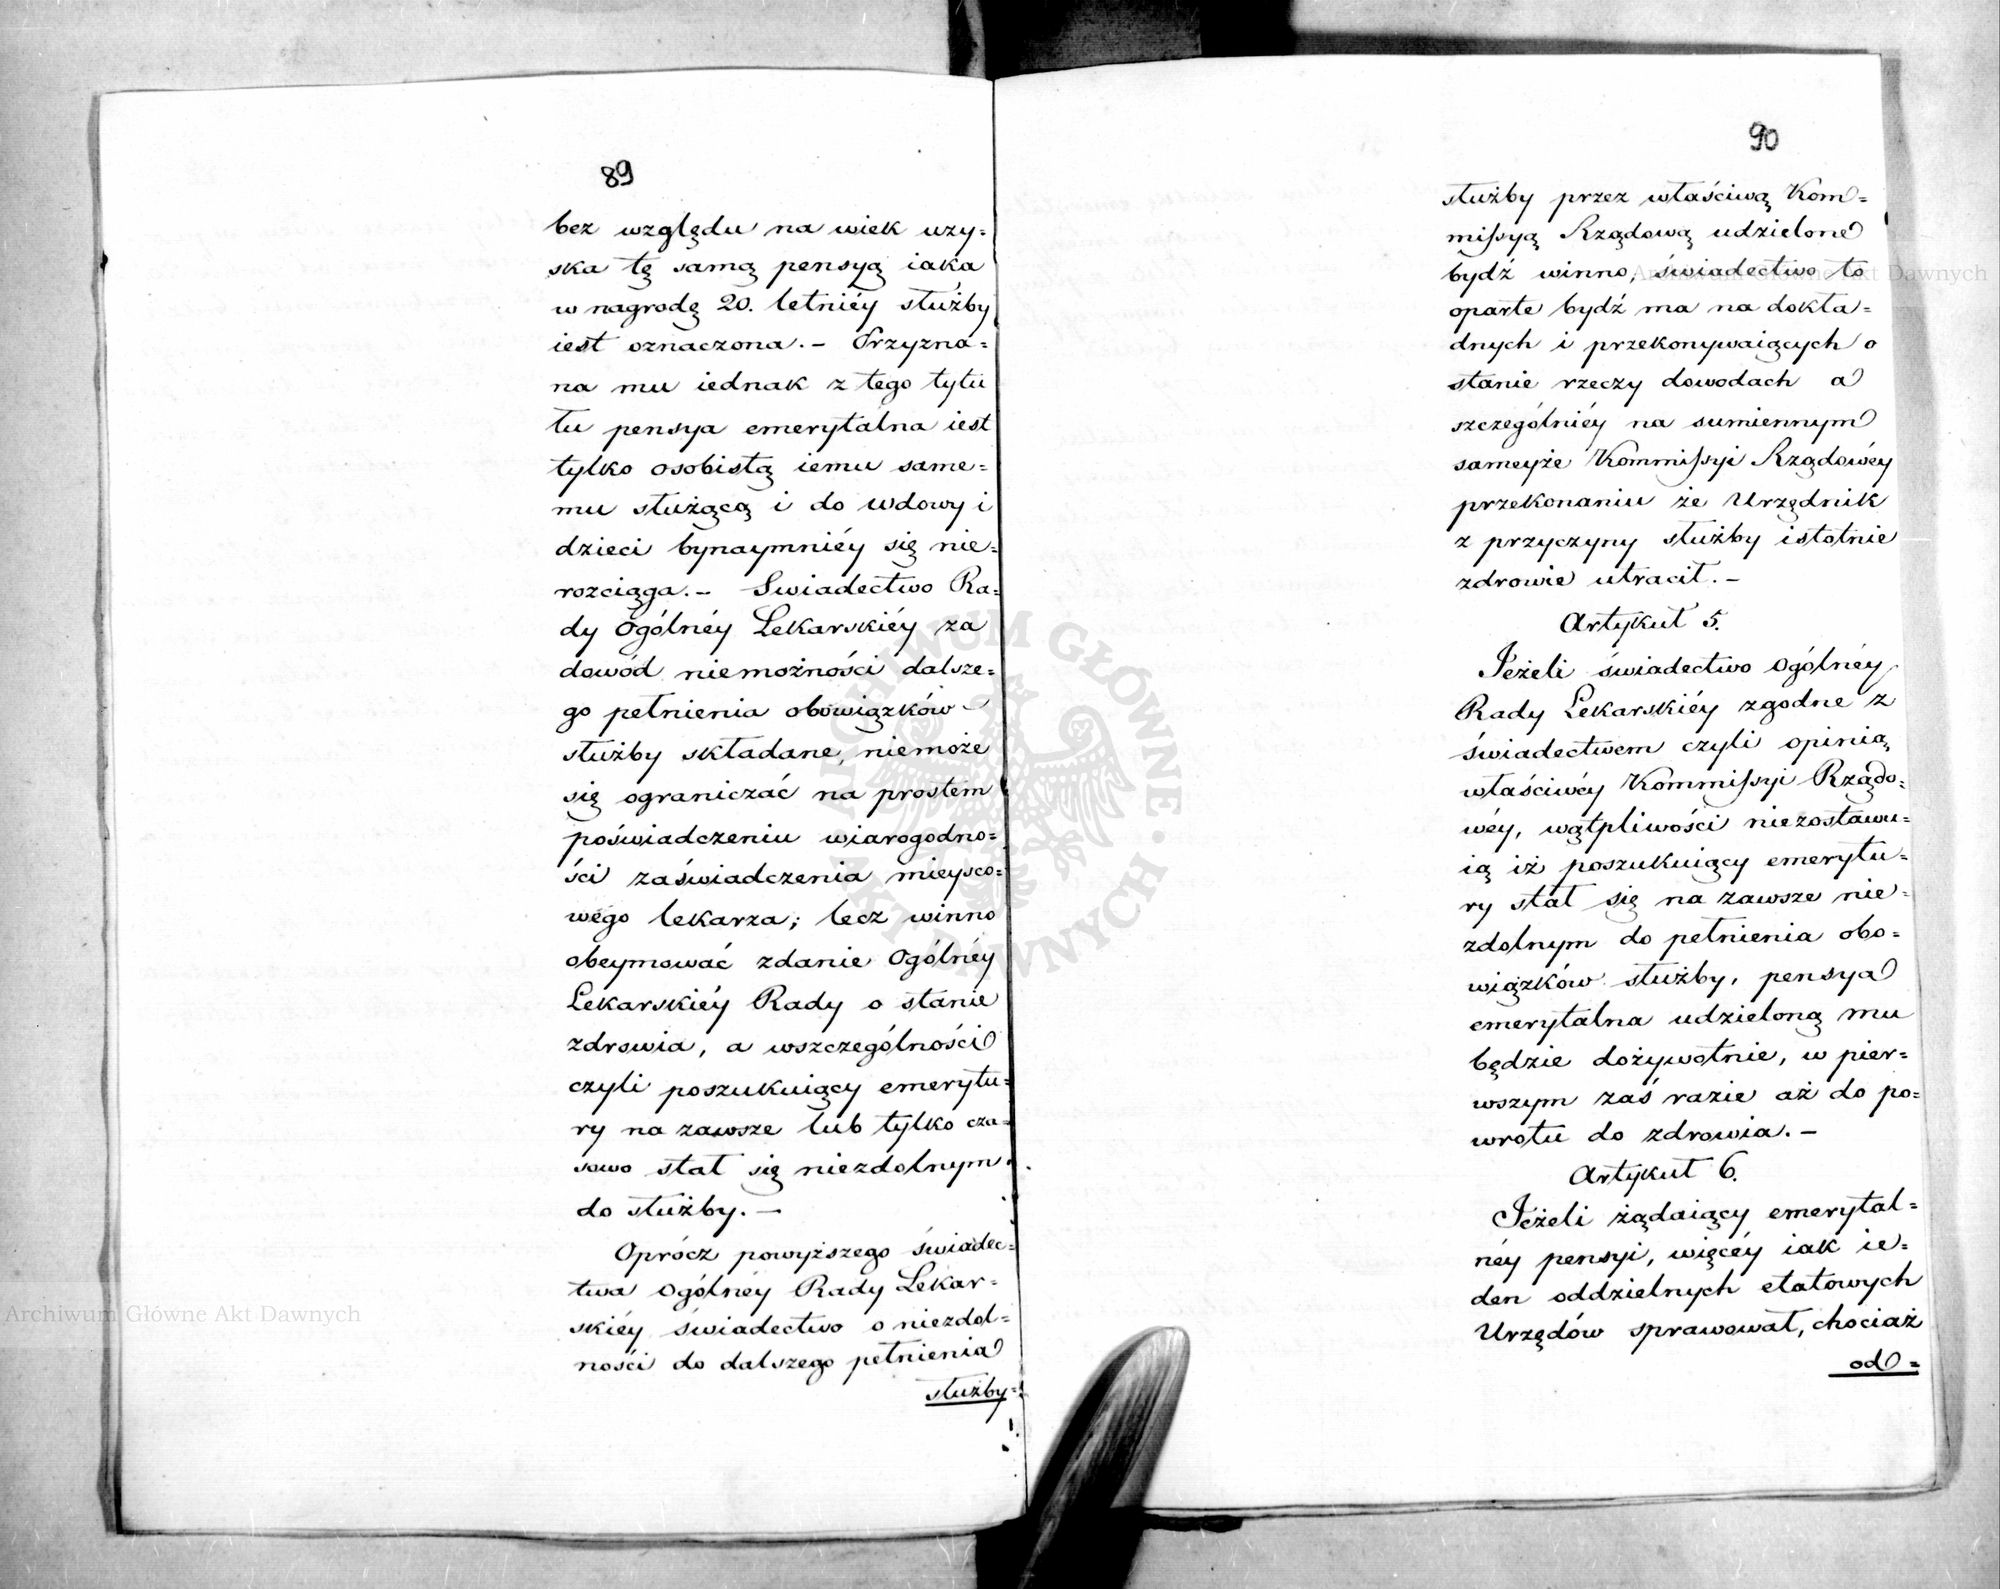 89
bez względu na wiek uzy=
ska tę samą pensyą iaka
w nagrodę 20. letniéy służby
iest oznaczona. – Przyzna=
na mu iednak z tego tytu
łu pensya emerytalna iest
tylko osobistą iemu same=
mu służącą i do wdowy i
dzieci bynaymniéy się nie=
rozciąga. – Swiadectwo Ra=
dy Ogólnéy Lekarskiéy za
dowód niemożności dalsze=
go pełnienia obowiązków
służby składane, niemoże
się ograniczać na prostem
poświadczeniu wiarogodno=
ści zaświadczenia mieysco=
wego lekarza; lecz winno
obeymować zdanie Ogólnéy
Lekarskiéy Rady o stanie
zdrowia, a wszczególności
czyli poszukuiący emerytu=
ry na zawsze lub tylko cza=
sowo stał się niezdolnym
do służby. –
Oprócz powyższego świadec=
twa Ogólnéy Rady Lekar=
skiéy świadectwo o niezdol=
ności do dalszego pełnienia
służby=
90
służby przez właściwą Kom=
missyą Rządową udzielone
bydź winno, świadectwo to
oparte bydź ma na dokła=
dnych i przekonywaiących o
stanie rzeczy dowodach a
szczególniéy na sumiennym
sameyże Kommissyi Rządowéy
przekonaniu że Urzędnik
z przyczyny służby istotnie
zdrowie utracił. –
Artykuł 5.
Jeżeli świadectwo Ogólnéy
Rady Lekarskiéy zgodne z
świadectwem czyli opinią
właściwéy Kommissyi Rządo=
wéy, wątpliwości niezostawu=
ią iż poszukuiący emerytu=
ry stał się na zawsze nie=
zdolnym do pełnienia obo=
wiązków służby, pensya
emerytalna udzieloną mu
będzie dożywotnie, w pier=
wszym zaś razie aż do po=
wrotu do zdrowia. –
Artykuł 6.
Jeżeli żądaiący emerytal=
néy pensyi, więcéy iak ie=
den oddzielnych etatowych
Urzędów sprawował, chociaż
od=
Archiwum Główne Akt Dawnych
Archiwum Główne Akt Dawnych
ARCHIWUM GŁÓWNE AKT DAWNYCH